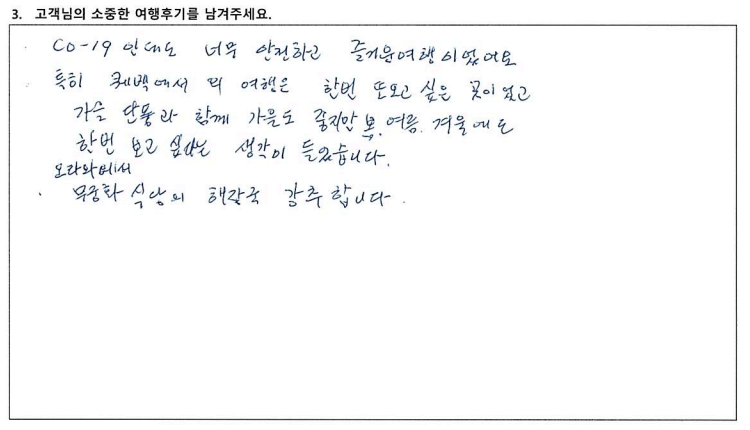 3. 고객님의 소중한 여행후기를 남겨주세요.
· CO-19 인데도 너무 안전하고 즐거운여행이었어요
· 특히 퀘백에서의 여행은 한번 또오고 싶은 곳이었고
가을 단풍과 함께 가을도 좋지만 봄, 여름, 겨울에도
한번 보고 싶다는 생각이 들었습니다.
오타와에서
· 무궁화 식당의 해장국 강추합니다.